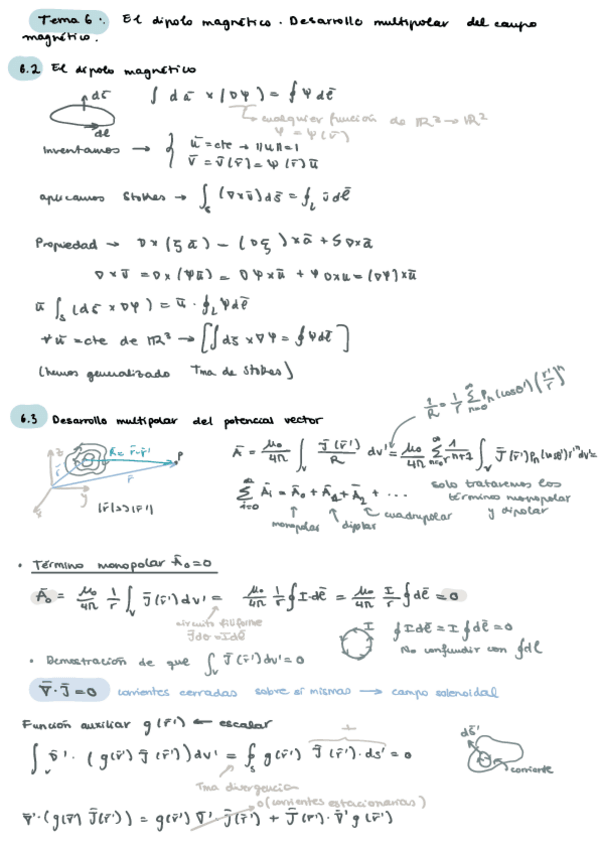 Tema 6: El dipolo magnético. Desarrollo multipolar del campo
magnético.
6.2 El dipolo magnético
dσ̄
dℓ
∫ dā × (∇φ) = ∮ Ψ dℓ̄
cualquier función de ℝ³ → ℝ²
Ψ = Ψ(r̄)
Inventamos → { ū = cte → ||u|| = 1
V̄ = V̄(r̄) = Ψ(r̄) ū
aplicamos Stokes → ∫_S (∇×v̄) ds̄ = ∮_L v̄ dℓ̄
Propiedad → ∇×(ξā) – (∇ξ)×ā + ξ∇×ā
∇×v̄ = ∇×(Ψū) = ∇Ψ×ū + Ψ∇×u = (∇Ψ)×ū
ū ∫_S (ds̄ × ∇Ψ) = ū · ∮_L Ψdℓ̄
∀ ū = cte de ℝ³ → [∫ds̄ × ∇Ψ = ∮Ψdℓ̄]
(hemos generalizado Tma de Stokes)
1/R = 1/r ∑_{n=0}^∞ P_n(cosθ') (r'/r)^n
6.3 Desarrollo multipolar del potencial vector
z
y
x
R̄ = r̄ - r̄'
r̄'
r̄
P
|r̄|>>|r̄'|
Ā = μ₀/4π ∫_V J̄(r̄')/R dv' = μ₀/4π ∑_{n=0}^∞ 1/r^{n+1} ∫_V J̄(r̄') P_n(cosθ') r'^n dv' =
∑_{i=0}^∞ Āᵢ = Ā₀ + Ā₁ + Ā₂ + ...
monopolar dipolar cuadrupolar
solo trataremos los
término monopolar
y dipolar
• Término monopolar Ā₀=0
Ā₀ = μ₀/4π 1/r ∫_V J̄(r̄')dv' = μ₀/4π 1/r ∮I·dℓ̄ = μ₀/4π I/r ∮dℓ̄ = 0
circuito filiforme
J̄dv = Idℓ̄
I
∮Idℓ̄ = I ∮dℓ̄ = 0
No confundir con ∮dl
• Demostración de que ∫_V J̄(r̄')dv' = 0
∇̄·J̄ = 0 corrientes cerradas sobre sí mismas → campo solenoidal
Función auxiliar g(r̄') ← escalar
∫_V ∇̄'·(g(r̄') J̄(r̄'))dv' = ∮_S g(r̄') J̄(r̄')·ds̄' = 0
⊥
Tma divergencia
ds̄'
corriente
0 (corrientes estacionarias)
∇̄'·(g(r̄') J̄(r̄')) = g(r̄') ∇̄'·J̄(r̄') + J̄(r̄')·∇̄'g(r̄')